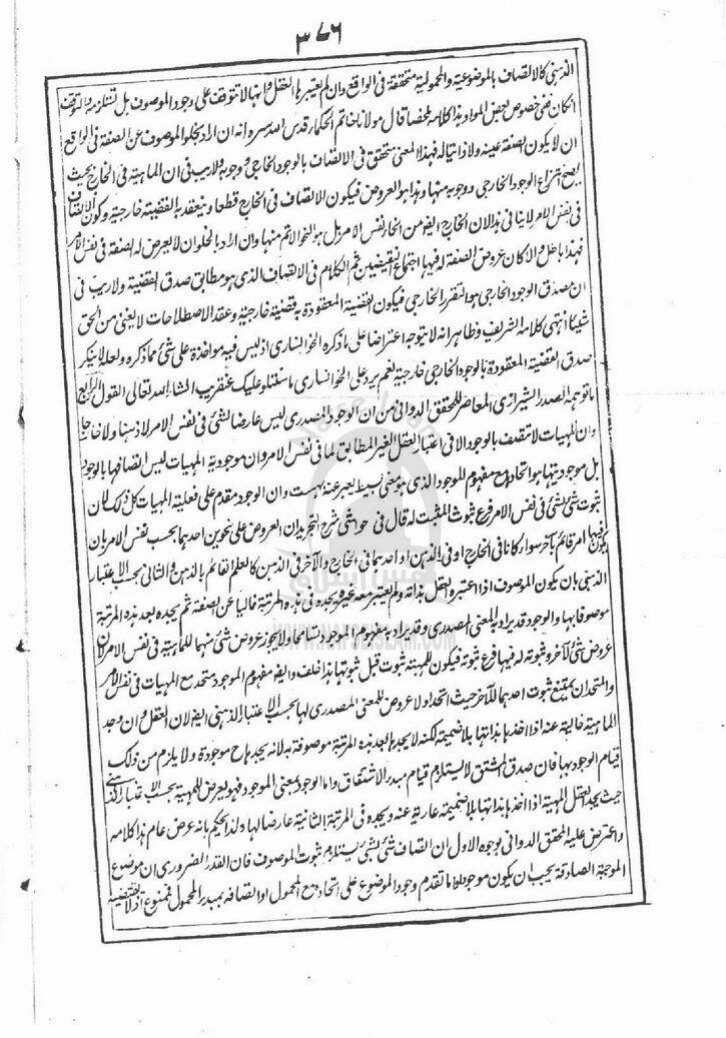 ٣٧٦
الذهني كالاتصاف بالموضوعية والمحمولية متحققة في الواقع وان لم يعتبرها العقل وانها لا تتوقف على وجود الموصوف بل تستلزمه والتوقف
ان كان ففى خصوص بعض المواد هذا كلامه ملخصا قال مولانا خاتم الحكماء قدس الله سره انه ان اراد بخلو الموصوف عن الصفة في الواقع
ان لا يكون الصفة عينه ولا ذاتيا له فهذا المعنى متحقق في الاتصاف بالوجود الخارجي ووجوبه ولا ريب في ان الماهية في الخارج بحيث
يصح انتزاع الوجود الخارجي ووجوبه منها وهذا هو العروض فيكون الاتصاف في الخارج قطعا وينعقد به القضية خارجية وكون الاتصاف
في نفس الامر لا ينافي هذا لان الخارج ايضا من انحاء نفس الامر بل هو النحو الاتم منها وان اراد بالخلو ان لا يعرض له الصفة في نفس الامر
فهذا باطل والا كان عروض الصفة له فيها اجتماع النقيضين ثم الكلام في الاتصاف الذي هو مطابق صدق القضية ولا ريب في
ان مصداق الوجود الخارجي هو التقرر الخارجي فيكون القضية المعقودة به قضية خارجية وعقد الاصطلاحات لا يغنى من الحق
شيئا انتهى كلامه الشريف وظاهر انه لا يتوجه اعتراضا على ما ذكره الخوانساري اذ ليس فيه مواخذة على شئ مما ذكره ولعله لا ينكر
صدق القضية المعقودة بالوجود الخارجي خارجية نعم يرد على الخوانساري ما سنتلو عليك عنقريب انشاء الله تعالى القول الرابع
ما توهمه الصدر الشيرازي المعاصر للمحقق الدواني من ان الوجود المصدري ليس عارضا لشئ في نفس الامر لا ذهنا ولا خارجا
وان المهيات لا تتصف بالوجود الا في اعتبار العقل الغير المطابق لما في نفس الامر وان موجودية المهيات ليس اتصافها بالوجود
بل موجوديتها هو اتحادها مع مفهوم الموجود الذي هو معنى بسيط يعبر عنه بهست وان الوجود مقدم على فعلية المهيات كل ذلك لان
ثبوت شئ لشئ في نفس الامر فرع ثبوت المثبت له قال في حواشي شرح التجريد ان العروض على نحوين احدهما بحسب نفس الامر بان
يكون فيها امر قائم بآخر سواء كانا في الخارج او في الذهن او احدهما في الخارج والآخر في الذهن كالعلم القائم بالذهن والثاني بحسب الاعتبار
الذهني بان يكون الموصوف اذا اعتبره العقل بذاته ولم يعتبر معه غيره ويجده في هذه المرتبة خاليا عن الصفة ثم يجده بعد هذه المرتبة
موصوفا بها والوجود قد يراد به المعنى المصدري وقد يراد به مفهوم الموجود تسامحا ولا يجوز عروض شئ منهما للماهية في نفس الامر لان
عروض شئ لآخر وثبوته له فيها فرع ثبوته فيكون للمهية ثبوت قبل ثبوتها هذا خلف وايضا مفهوم الموجود متحد مع المهيات في نفس الامر
والمتحدان يمتنع ثبوت احدهما للآخر حيث اتحدا ولا عروض للمعنى المصدري لها بحسب الاعتبار الذهني ايضا لان العقل وان وجد
الماهية خالية عنه اذا اخذها بذاتها بلا ضميمة لكنه لا يجدها بعد هذه المرتبة موصوفة به لانه يجدها ح موجودة ولا يلزم من ذلك
قيام الوجود بها فان صدق المشتق لا يستلزم قيام مبدء الاشتقاق واما الوجود بمعنى الموجود فهو يعرض للمهية بحسب الاعتبار الذهني
حيث يجد العقل المهية اذا اخذها بذاتها بلا ضميمة عارية عنه ويجده في المرتبة الثانية عارضا لها ولذا يحكم بانه عرض عام هذا كلامه
واعترض عليه المحقق الدواني بوجوه الاول ان اتصاف شئ بشئ يستلزم ثبوت الموصوف فان القدر الضروري ان موضوع
الموجبة الصادقة يجب ان يكون موجودا اما تقدم وجود الموضوع على اتحاده مع المحمول او اتصافه بمبدء المحمول فممنوع اذ لا يقتضيه
WWW.NAFSEISLAM.COM